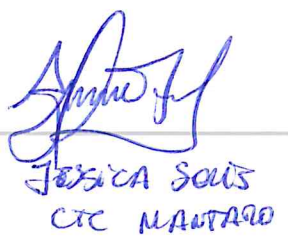 JESSICA SOLIS
CTC MANTARO